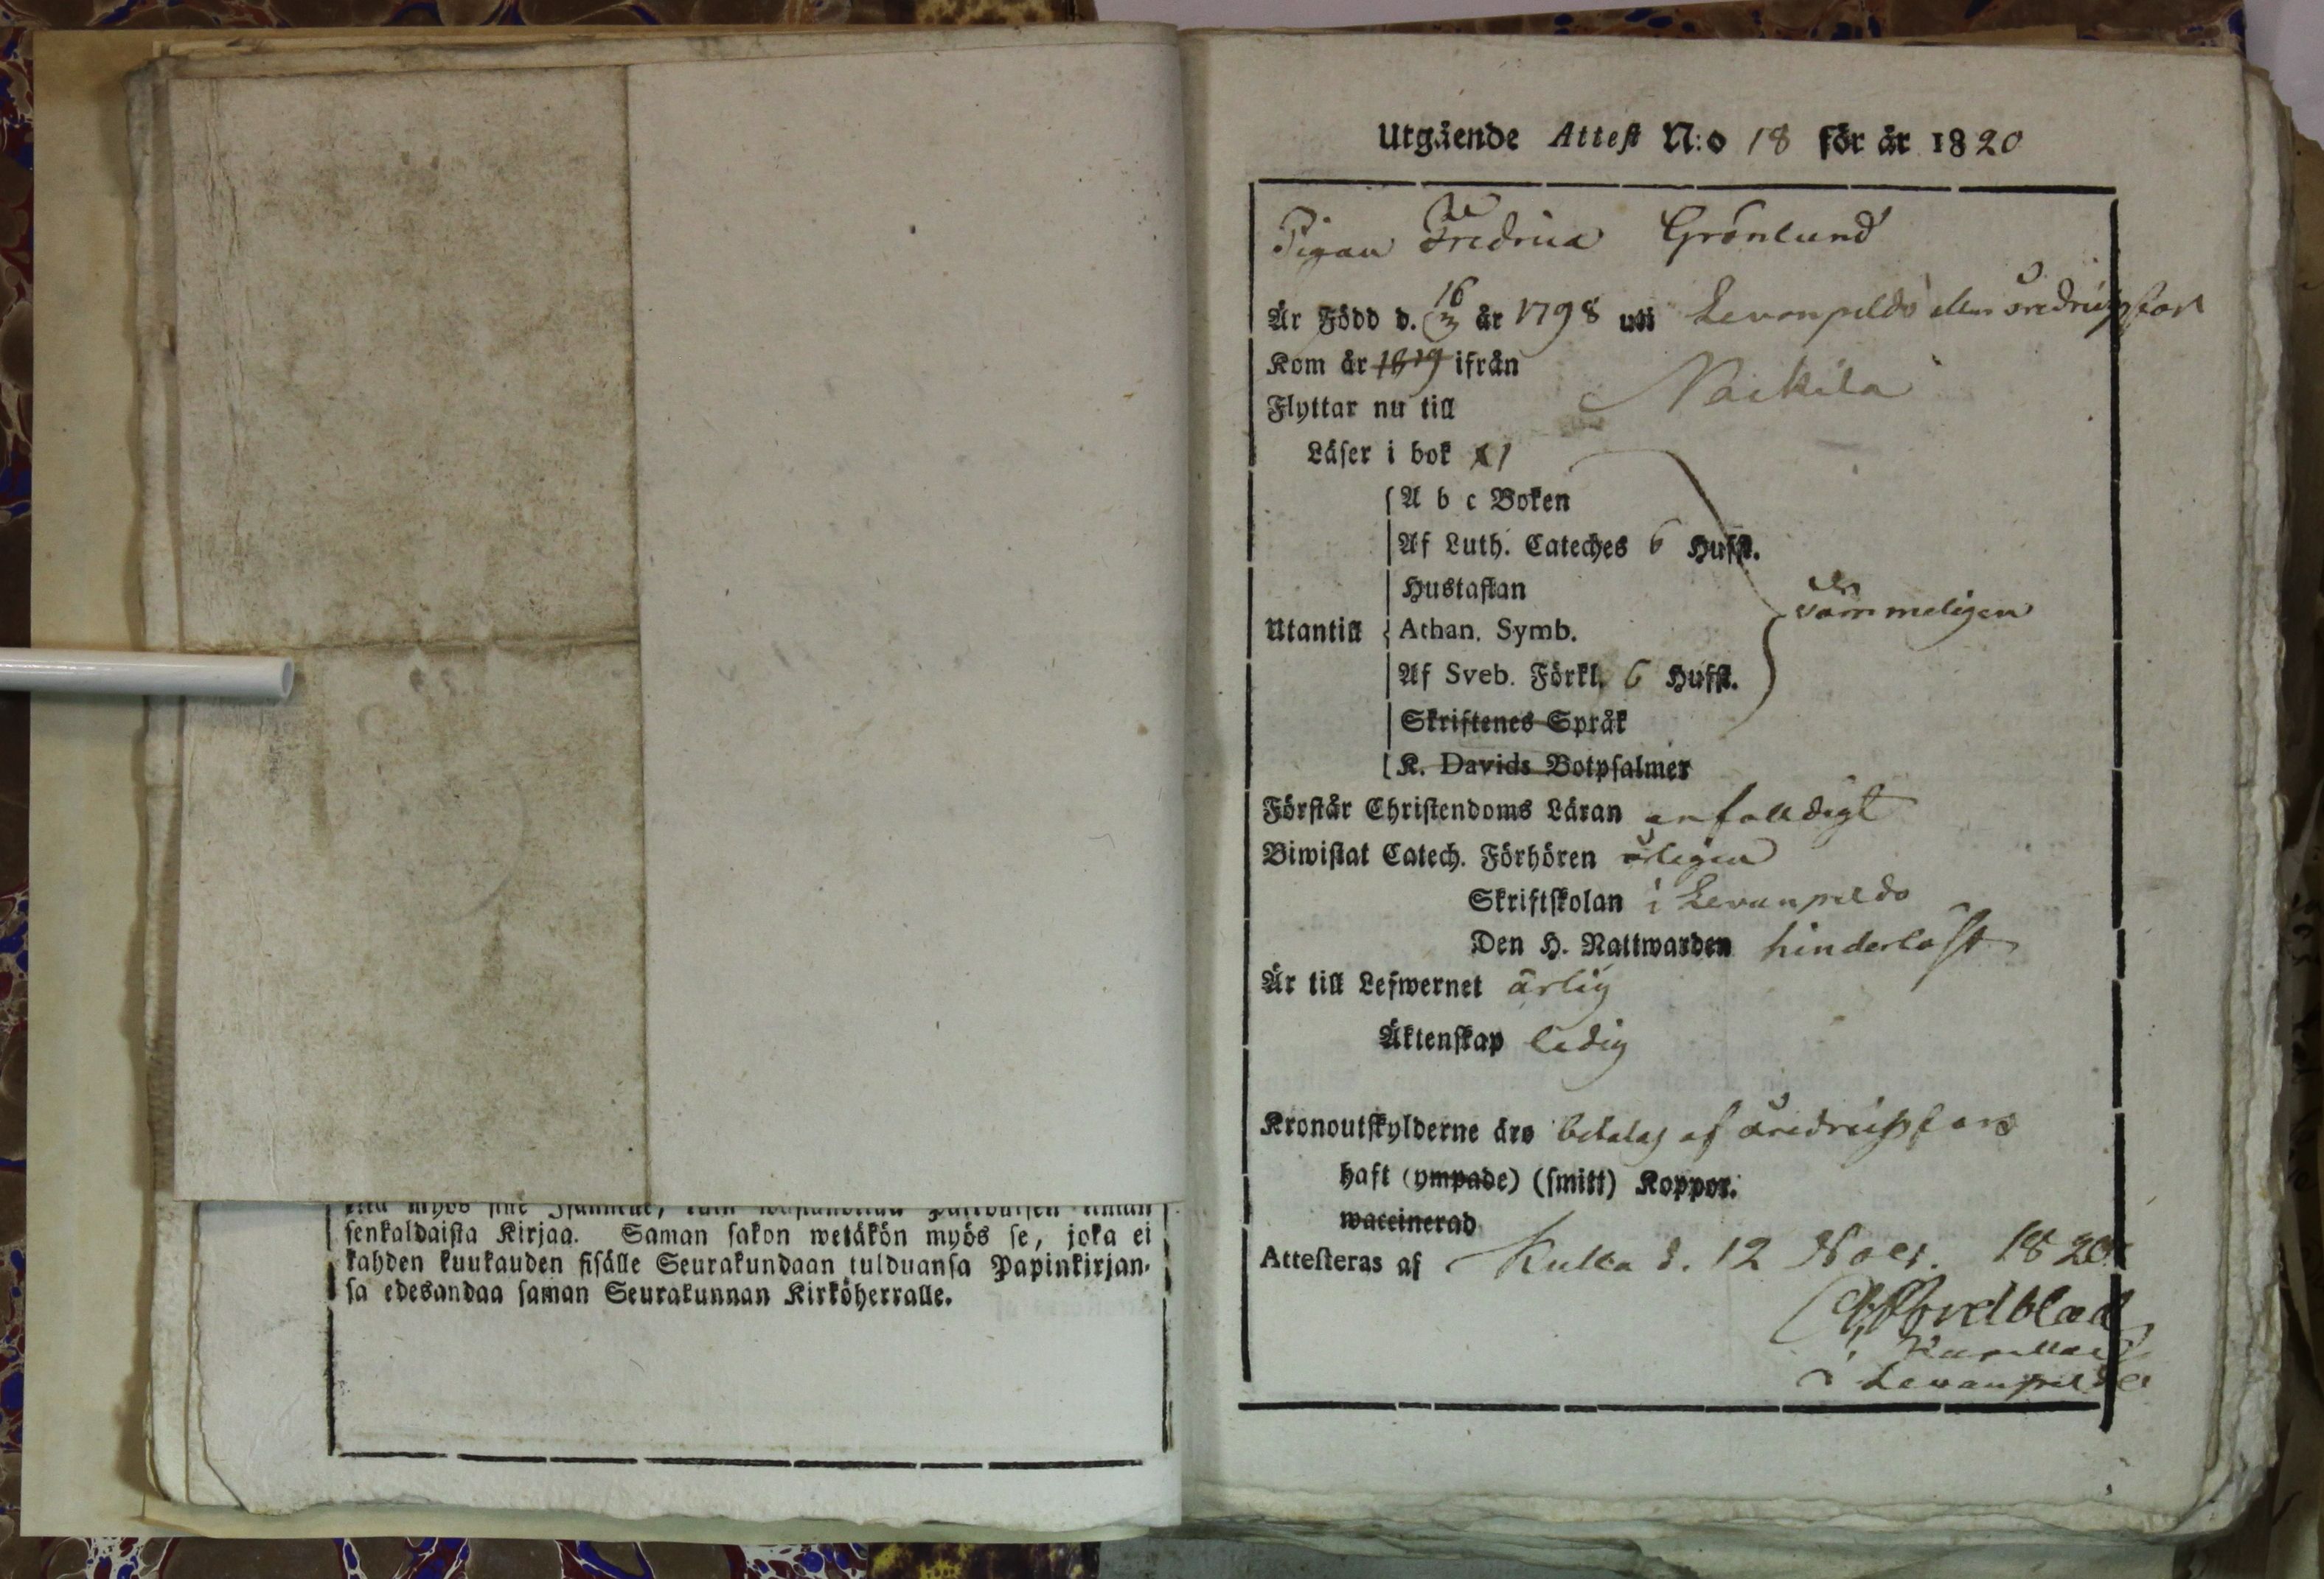 senkaldaista Kirjaa. Saman sakon wetäkön myös se, joka ei
kahden kuukauden sisälle Seurakundaan tulduansa Papinkirjan-
sa edesandaa saman Seurakunnan Kirköherralle.
Utgående Attest N:o 18 för år 1820
Pigan Fredrica Grönlund
Är Född d. 16/3 år 1798 uti
Kom år 1819 ifrån
Flyttar nu till Nackila
Läser i bok 1
A b c Boken
Af Luth. Cateches 6 Hufst.
Hustaflan
Utantill Athan. Symb.
Af Sveb. Förkl. 6 Hufst.
Skriftenes Språk
K. Davids Botpsalmer
Förstår Christendoms Läran enfalldigt
Biwistat Catech. Förhören årligen
Skriftskolan i
Den H. Nattwarden hinderlöst
Är till Lefwernet ärlig
Äktenskap ledig
Kronoutskylderne äro betalas af
haft (ympade) (smitt) Koppor.
waccinerad
Attesteras af Kulla d. 12 Nov. 1820